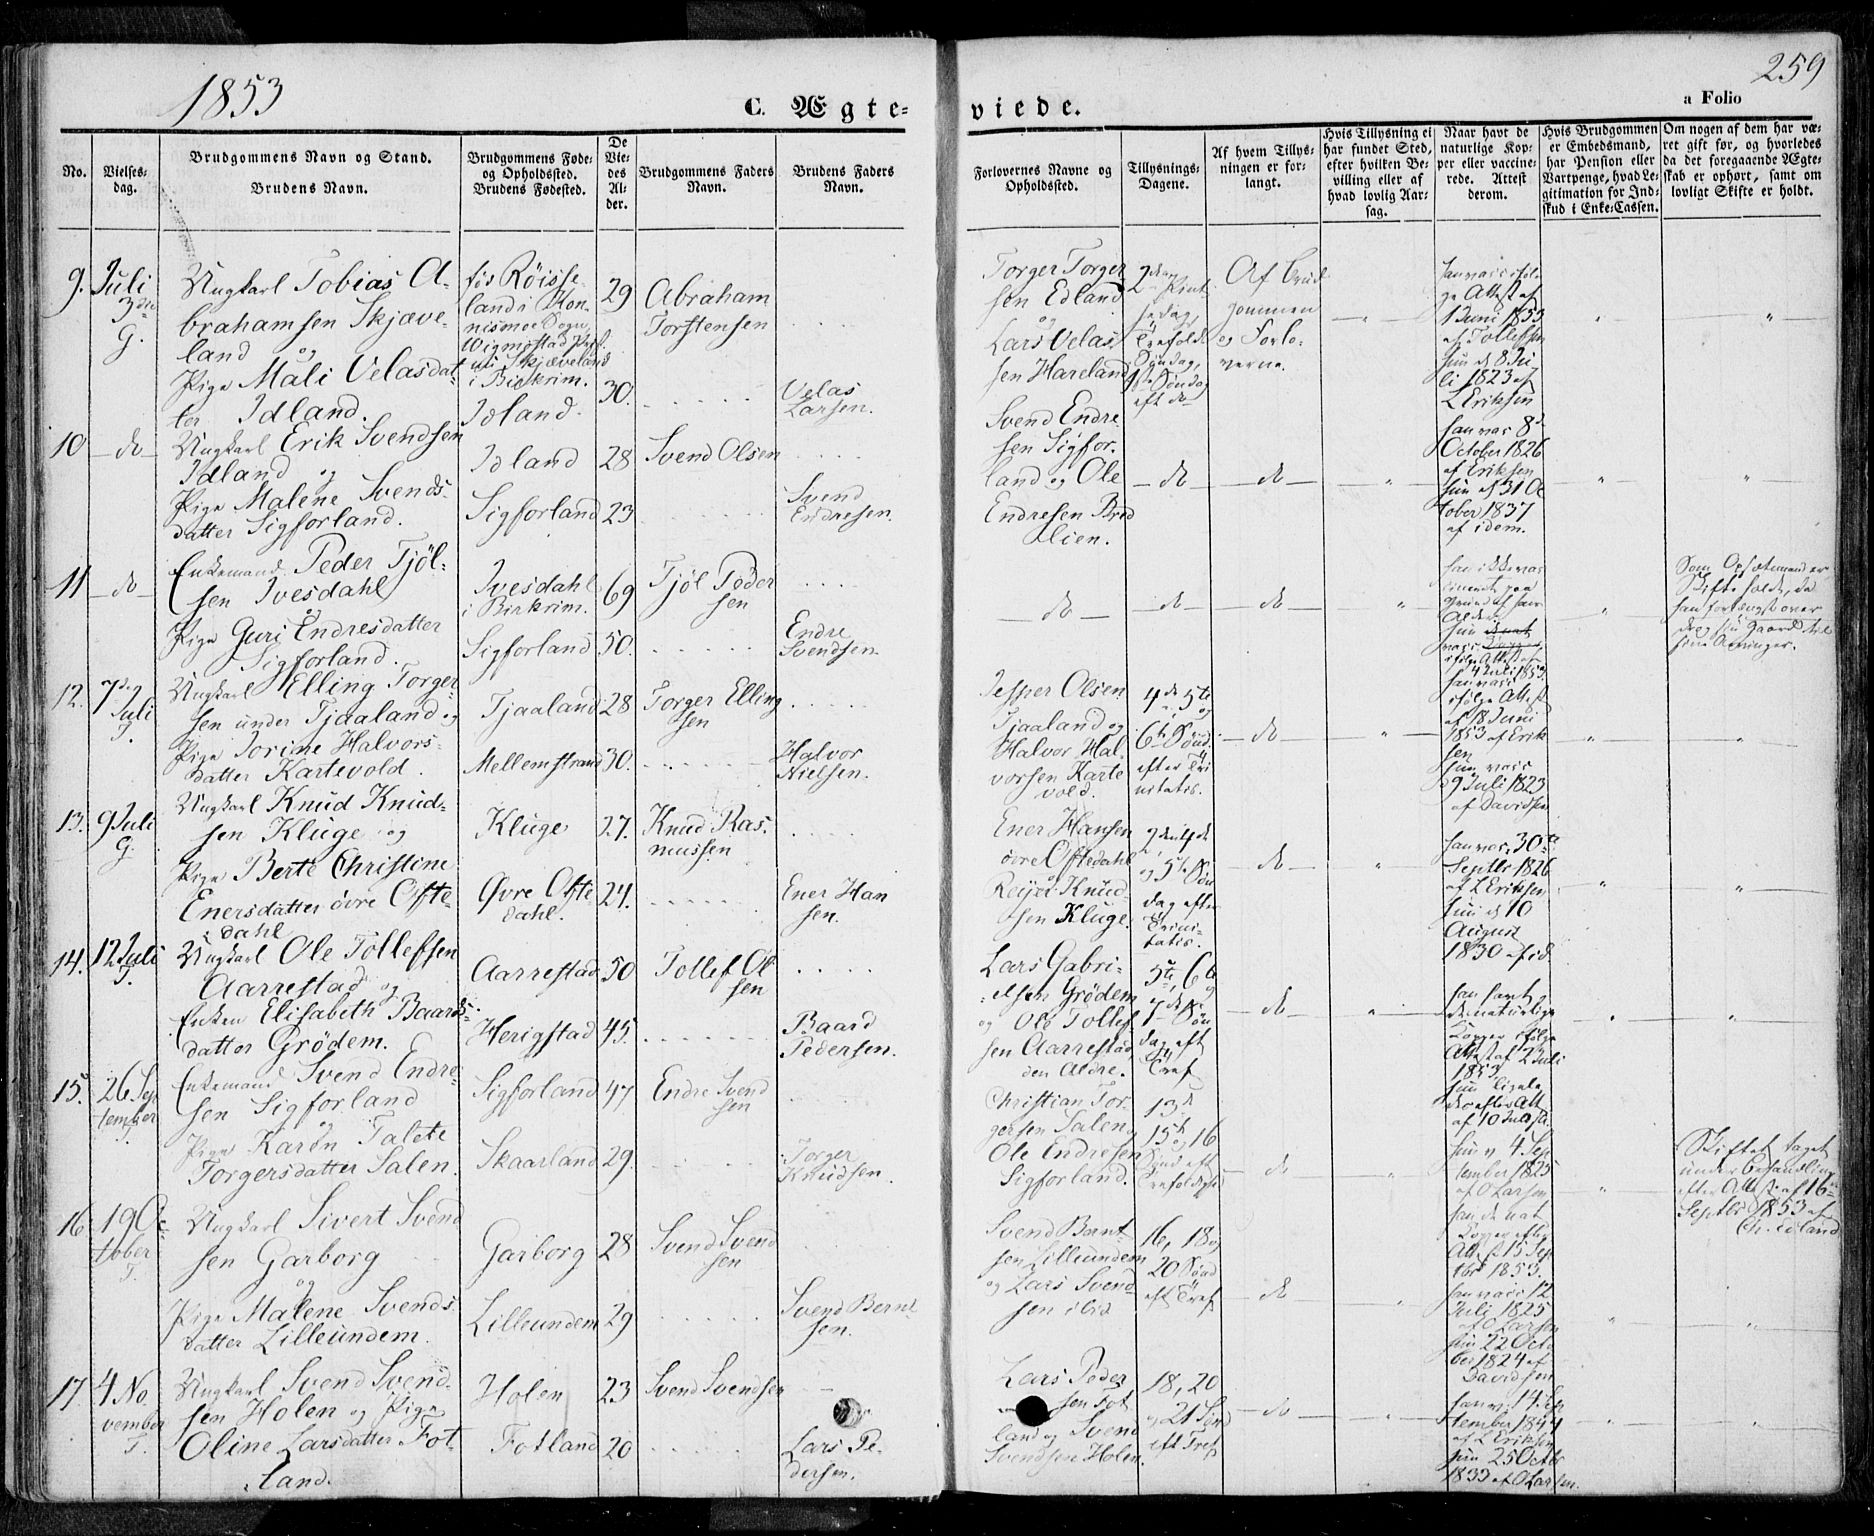 1853
C. Ægte=
viede.
259
a Folio
No.
Vielses=
dag.
Brudgommens Navn og Stand.
Brudens Navn.
Brudgommens Føde=
og Opholdssted.
Brudens Fødested.
De
Vie=
des
Al=
der.
Brudgommens Faders
Navn.
Brudens Faders
Navn.
Forlovernes Navne og
Opholdssted.
Tillysnings=
Dagene.
Af hvem Tillys=
ningen er for=
langt.
Hvis Tillysning ei
har fundet Sted,
efter hvilken Be=
villing eller af
hvad lovlig Aar=
sag.
Naar havt de
naturlige Kop=
per eller vaccine=
rede. Attest
derom.
Hvis Brudgommen
er Embedsmand,
har Pension eller
Vartpenge, hvad Le=
gitimation for Ind=
skud i Enke=Cassen.
Om nogen af dem har væ=
ret gift før, og hvorledes
da det foregaaende Ægte=
skab er ophørt, samt om
lovligt Skifte er holdt.
9.
Juli
3die
G.
Ungkarl Tobias A-
brahamsen Skjæve-
land og
Pige Mali Velasdat-
ter Idland.
føs Röisse-
land i Kon-
nismoe Sogn,
Wigmostad
Skjæveland
i Birkrim.
Idland.
29
30.
Abraham
Torstensen
Velas
Larsen.
Torger Torger
sen Edland
og
Lars Velas-
sen Hareland
2den Pint
sedag,
Trefoldt
Söndag,
1ste Söndag
eft do
Af Brud
gommen
og Forlo-
verne.
1 Juni 1853
af Tollefsen
hun d 8 Ju
li 1823 af
L Eriksen
10
do
Ungkarl Erik Svendsen
Idland og
Pige Malene Svends-
datter Sigforland.
Idland
Sigforland
28
23
Svend Olsen
Svend
Endresen.
Svend Endre
sen Sigfor-
land og Ole
Endresen Bred
Lien.
do
do
han var 8de
October 1826
af Eriksen
hun af 31 Oc
tober 1837
af idem.
11
do
Enkemand Peder Tjöl-
sen Ivesdahl
og
Pige Guri Endresdatter
Sigforland.
Ivesdahl
i Birkrim.
Sigforland
69
50.
Tjöl Peder
sen
Endre
Svendsen.
do
do
do
han ikke var
vaccineret paa
Grund af sin
Alder.
4 Juli 1853.
Som Opsætmand er
Skifte holdt, da
han forlængst over
drog sin Gaard til
sine Arvinger.
12.
7de
Juli
T.
Ungkarl Elling Torger-
sen under Tjaaland og
Pige Jorine Halvors-
datter Kartevold.
Tjaaland
Mellemstrand
28
30.
Torger Elling
sen
Halvor
Nielsen.
Jesper Olsen
Tjaaland og
Halvor Hal
vorsen Karte
vold.
4de, 5te
og
6te Sönd.
efter Tri
nitatis.
do
ifölge Attest
af 18 Juni
1853 af Erik
sen
hun var
9 Juli 1823
af Davidsen
13.
9 Juli
G.
Ungkarl Knud Knud-
sen Kluge og
Pige Berte Christine
Enersdatter övre Ofte-
dahl
Kluge
Övre Ofte
dahl.
27.
24.
Knud Ras-
mussen
Ener Han
sen.
Ener Hansen
övre Oftedahl
og
Reijer Knud-
sen Kluge.
2den 4de
og 5te Sön
dag efter
Trini-
tatis.
do
han var 30te
Septbr 1826
af L Eriksen
hun d 10
August
1830 af id
14.
12 Juli
T.
Ungkarl Ole Tollefsen
Aarrestad og
Enken Elisabeth Baards-
datter Grödem.
Aarrestad
Herigstad
50
45.
Tollef Ol
sen
Baard
Pedersen.
Lars Gabri-
elsen Grödem
og Ole Tollef-
sen Aarrestad
den Ældre.
5te, 6te
og
7de Sön
dag eft
Tref
do
han havt
de naturlige
Kopper ifölge
Att af 2 Juli
1853.
hun ligele
des efter Att
af 10 Juli
15.
26 Sep
tember
T.
Enkemand Svend Endre-
sen Sigforland
og
Pige Karen Talete
Torgersdatter Salen.
Sigforland
Skaarland
47
29.
Endre Svend
sen
Torger
Knudsen.
Christian Tor-
gersen Salen,
Ole Endresen
Sigforland.
13de
15te og 16
Sönd eft
Trefoldigh
do
hun 4 Sep
tember 1825
af O Larsen
Skiftet taget
under Behandling
efter Attest af 16de
Septbr 1853 af
Ch. Edland
16
19 Oc-
tober
T.
Ungkarl Sivert Svend
sen Garborg
og
Pige Malene Svends
datter Lilleundem.
Garborg
Lilleundem
28
29
Svend Svend
sen
Svend Bernt
sen.
Svend Bernt
sen Lilleundem
og Lars Svend
sen ibid
16, 18 og
20 Sönd
eft Tref
do
han de nat
Kopper efter
Att af 15 Sep
tbr 1853.
han var 12
Juli 1825
af O Larsen
hun 22 Octo
ber 1824 af
Davidsen
17
4 No
vember
T.
Ungkarl Svend Svend-
sen Holen og Pige
Oline Larsdatter Fot-
land.
Holen
Fotland
23
20
Svend Svendsen
Lars Pe-
dersen.
Lars Peder
sen Fot
land og Svend
Svendsen Holen.
18, 20
og 21 Sön
eft Tref
do
han v. 14 Sep
tember 1844
af L Eriksen
hun 25 Octbr
1833 af O Larsen.